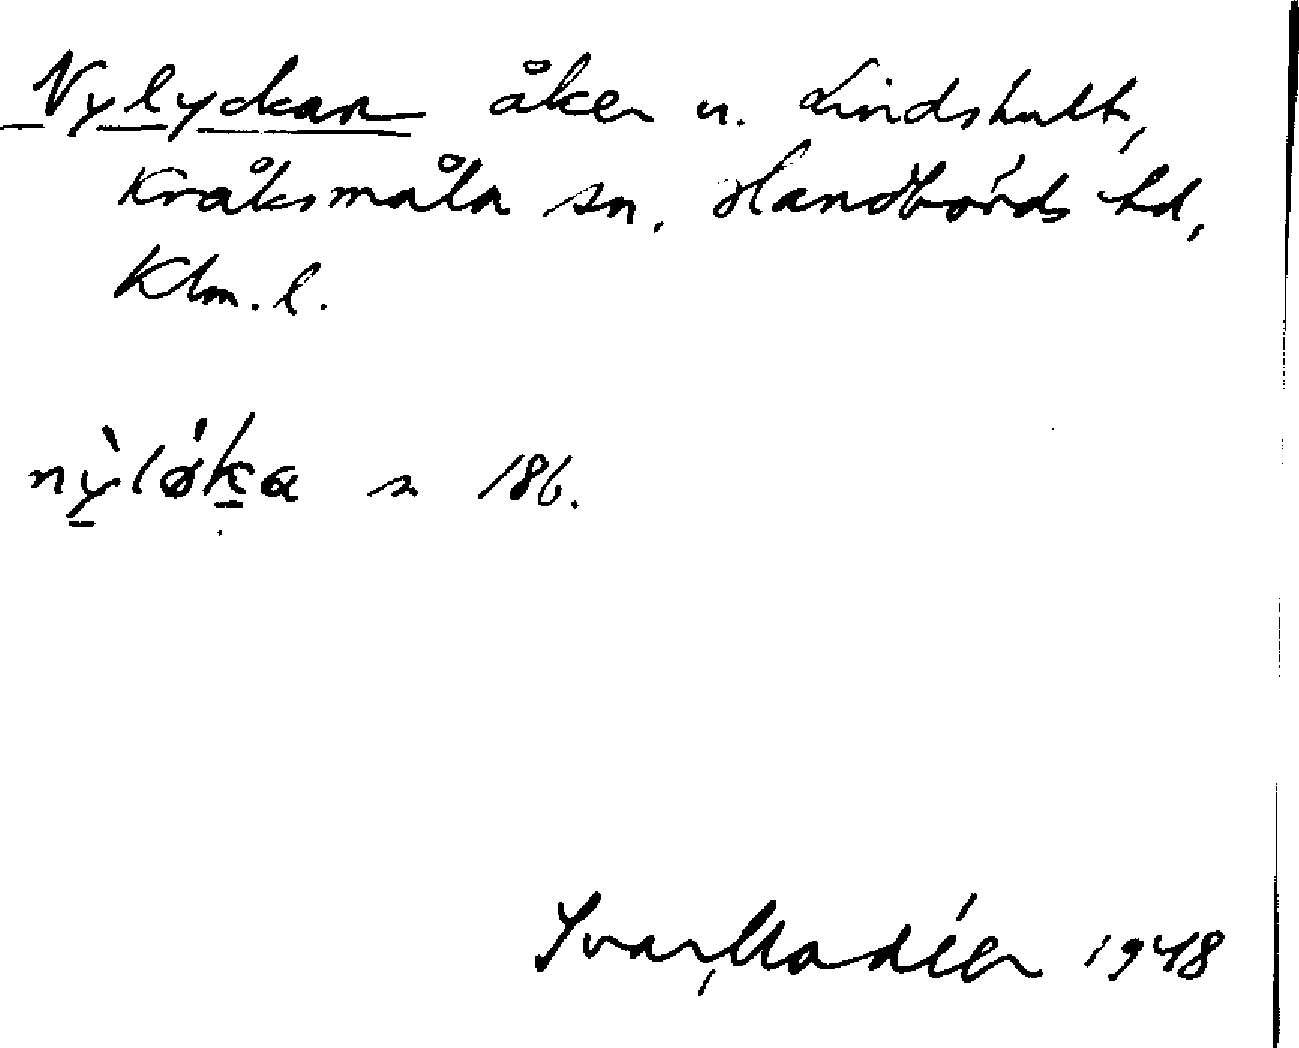 Nylyckan åker u. Lindshult,
Kråksmåla sn, Handbörds hd,
Klm. l.
nỳløka s 186.
Ivar Modéer 1948